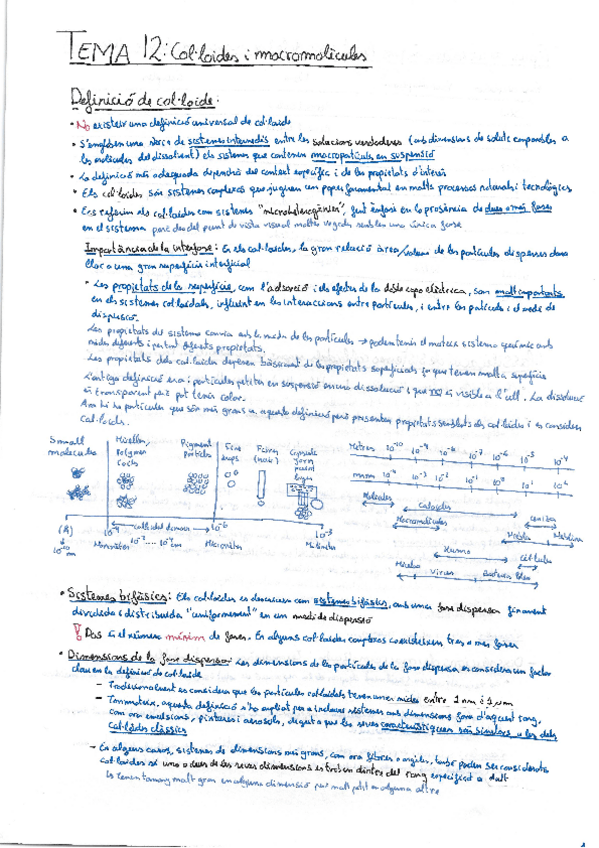 TEMA 12: Col·loides i macromolècules
Definició de col·loide:
• No existeix una definició universal de col·loide
• S'engloben una sèrie de sistemes intermedis entre les solucions verdaderes (amb dimensions de soluts comparables a
les molècules del dissolvent) i els sistemes que contenen macropartícules en suspensió
• La definició més adequada dependrà del context específic i de les propietats d'interès
• Els col·loides són sistemes complexos que juguen un paper fonamental en molts processos naturals i tecnològics
• Ens referim als col·loides com sistemes "microheterogènis", fent èmfasi en la presència de dues o més fases
en el sistema però des del punt de vista visual moltes vegades sembla una única fase
Importància de la interfase: En els col·loides, la gran relació àrea/volum de les partícules disperses dona
lloc a una gran superfície interficial
• Les propietats de la superfície, com l'adsorció i els efectes de la doble capa elèctrica, són molt importants
en els sistemes col·loidals, influint en les interaccions entre partícules, i entre les partícules i el medi de
dispersió.
Les propietats del sistema canvia amb la mida de les partícules → podem tenir el mateix sistema químic amb
mides diferents i portant diferents propietats.
Les propietats dels col·loides depenen bàsicament de les propietats superficials ja que tenen molta superfície
L'antiga definició era: partícules petites en suspensió en una dissolució i que no és visible a l'ull. La dissolució
és transparent però pot tenir color.
Ara hi ha partícules que són més grans que aquesta definició però presenten propietats semblants als col·loides i es consideren
col·loides.
Small molecules
Micelles, Polymer Coils
Pigment particles
Fibres (hair)
Metres 10⁻¹⁰ 10⁻⁹ 10⁻⁸ 10⁻⁷ 10⁻⁶ 10⁻⁵ 10⁻⁴
10⁻⁴ 10⁻³ 10⁻² 10⁻¹ 10⁰ 10¹
Molècules
Col·loides
Macromolècules
Micel·les
Virus
Humo
Niebla
Cèl·lules
(Å)
10⁻⁹
col·loidal domain
10⁻⁶
10⁻³
Micròmetre
• Sistemes bifàsics: Els col·loides es descriuen com sistemes bifàsics, amb una fase dispersa finament
dividida i distribuïda "uniformement" en un medi de dispersió
! Dos és el número mínim de fases. En alguns col·loides complexos coexisteixen tres o més fases
• Dimensions de la fase dispersa: Les dimensions de les partícules de la fase dispersa es considera un factor
clau en la definició de col·loide
– Tradicionalment es considera que les partícules col·loidals tenen unes mides entre 1 nm i 1 μm
– Tanmateix, aquesta definició s'ha ampliat per a incloure sistemes amb dimensions fora d'aquest rang,
com ara emulsions, pintures i aerosols, degut a que les seves característiques són similars a les dels
Col·loides clàssics
– En alguns casos, sistemes de dimensions més grans, com ara fibres o argiles, també poden ser considerats
col·loides si una o dues de les seves dimensions estan dintre del rang especificat a dalt